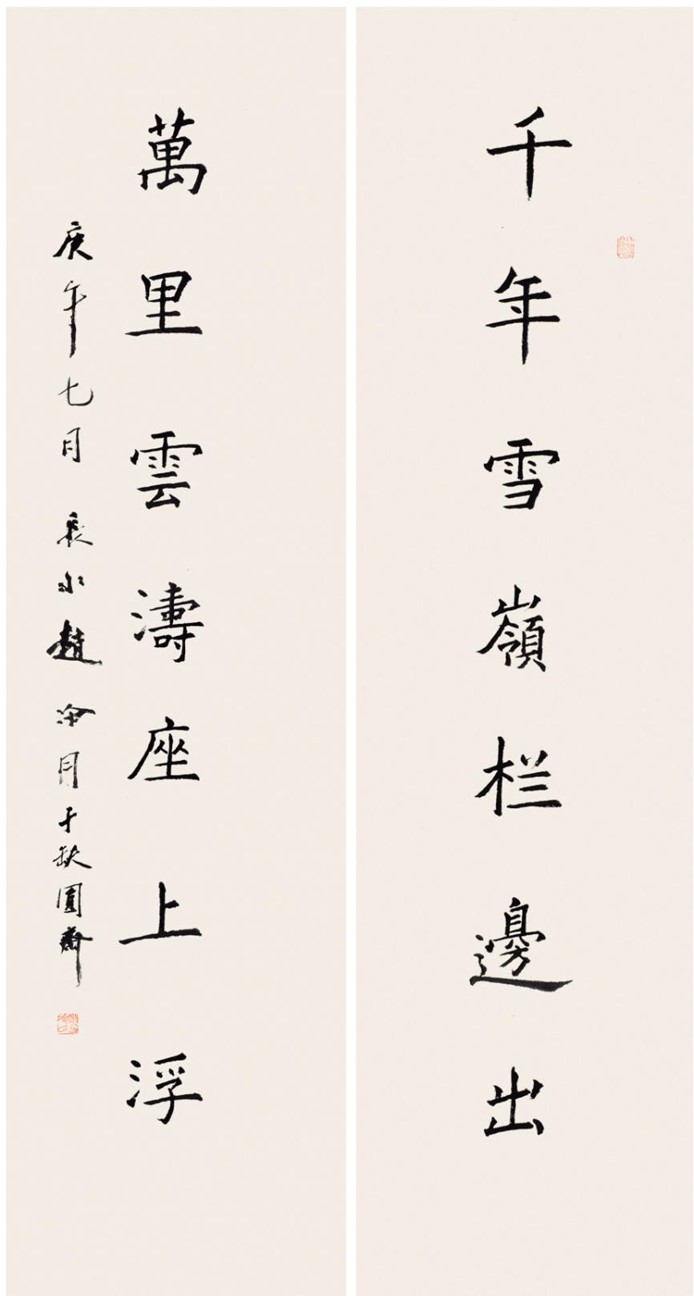 千年雪嶺栏邊出
萬里雲濤座上浮
庚午七月袁水趙冷月于缺圓齋